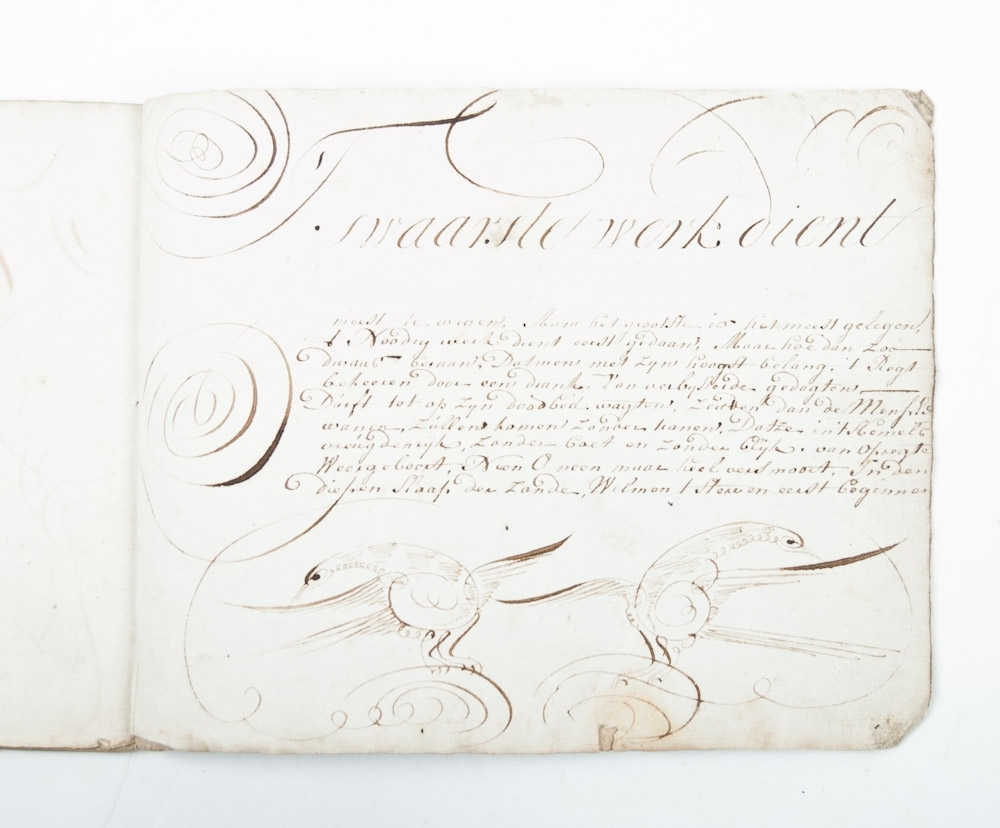 T swaarste werk dient
meest te wegen, Maar het grootste is het meest gelegen,
t Noodig werk dient eerst gedaan, Maar hoe dan zoo
dwaas beraan, Datmen met zyn hoogst belang, t Regt
bekeeren door een drank, Van verbysterde gedagten
Durft tot op zyn doodbed wagten, zeitsen dan de Mensch
wanen, Zullen komen zonder tranen, Datze in't Hemels
vreugdenryk, Zonder boet en zonder blyk, van opregte
Weergeboort, Neen O neen maar heel versmoort, In den
diepen Slaap der zonde, Wilmen t sterven eerst beginnen